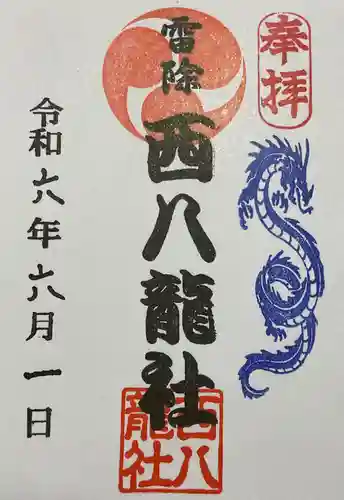 奉拝
雷除
西八龍社
西八
龍社
令和六年六月一日